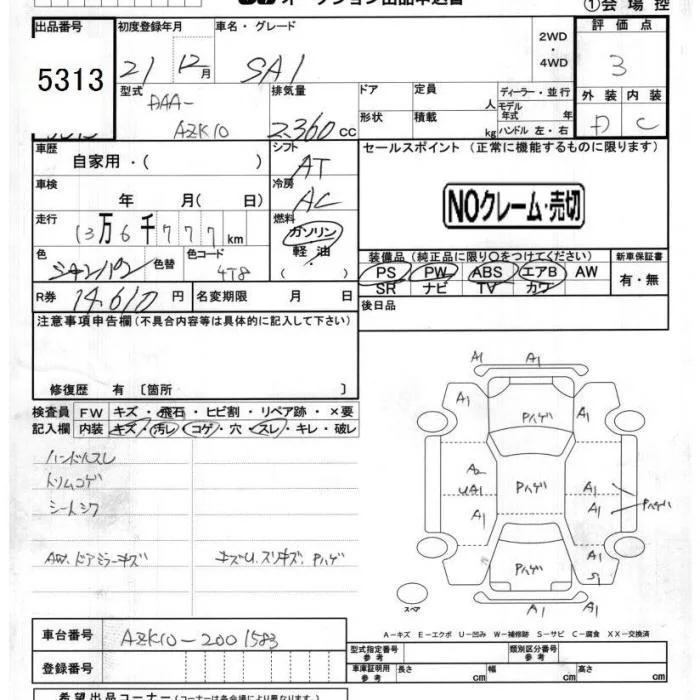 ①会場控
出品番号 初度登録年月 車名・グレード 評価点
5313 21 12月 SAI 2WD・4WD 3
型式 DAA-AZK10 排気量 2,360cc ドア 定員 人 ディーラー・並行 外装 内装
形状 積載 kg モデル年式 年 ハンドル 左・右 D C
車歴 自家用・( ) シフト AT セールスポイント(正常に機能するものに限ります)
車検 年 月( 日) 冷房 AC
NOクレーム・売切
走行 13万6千777km 燃料 ガソリン 軽油・
装備品(純正品に限り○をつけてください) 新車保証書
色 色替 色コード 4T8 PS PW ABS エアB AW 有・無
SR ナビ TV カワ
R券 14,610円 名変期限 月 日 後日品
注意事項申告欄(不具合内容等は具体的に記入して下さい)
修復歴 有〔箇所 〕
検査員 FW キズ・飛石・ヒビ割・リペア跡・×要
記入欄 内装 キズ・汚レ・コゲ・穴・スレ・キレ・破レ
ハンドルスレ
トリムコゲ
シートシワ
AW.ドアミラーキズ キズU.スリキズ.Pハゲ
A1 A1
A1 Pハゲ A1
A2
UA1 Pハゲ A1
A1 A1 Pハゲ
A1 Pハゲ A1
S1
A1 A1
スペア
A-キズ E-エクボ U-凹み W-補修跡 S-サビ C-腐食 XX-交換済
車台番号 AZK10-2001583
型式指定番号 参考 類別区分番号 参考
登録番号 車庫証明用 参考 長さ cm 幅 cm 高さ cm
希望出品コーナー(コーナーは各会場により異なります。)